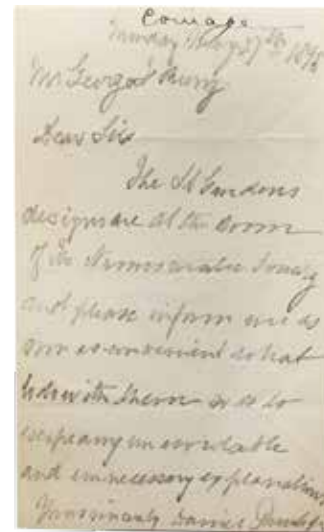 Coinage
Sunday
Mr George
Dear Sir
The St Gaudens
designs are at the room
of the Numismatic Society
and please inform me as
soon as convenient what
to do with them so as to
escape any unavoidable
and unnecessary explanation
Yours sincerely Daniel